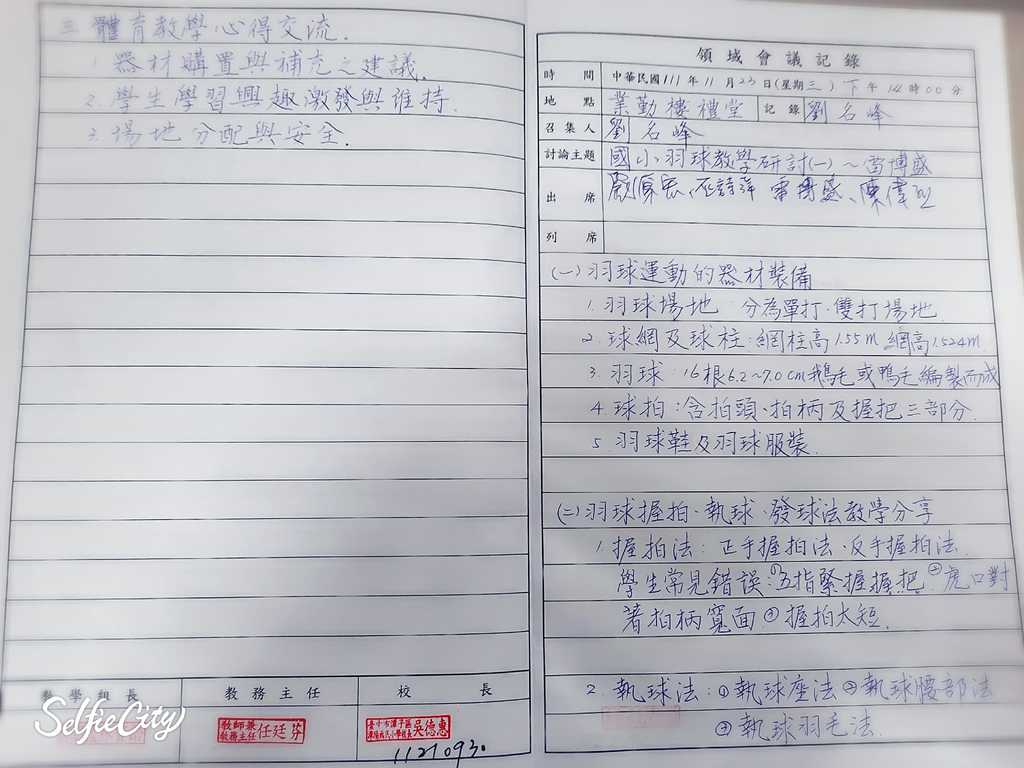 三 體育教學心得交流.
1 器材購置與補充之建議.
2. 學生學習興趣激發與維持.
3. 場地分配與安全.
教學組長
教務主任
校長
教師兼教務主任 任廷芬
吳德惠
1121093.
SelfieCity
領域會議記錄
時間 中華民國 111 年 11 月 23 日(星期三)下午 14時00分
地點 業勤樓禮堂 記錄 劉名峰
召集人 劉名峰
討論主題 國小羽球教學研討(一)~雷博盛
出席
列席
(一)羽球運動的器材裝備
1. 羽球場地 分為單打、雙打場地.
2. 球網及球柱:網柱高1.55m 網高1.524m
3. 羽球:16根6.2~7.0cm鵝毛或鴨毛編製而成
4. 球拍:含拍頭、拍柄及握把三部分.
5. 羽球鞋及羽球服裝.
(二)羽球握拍、執球、發球法教學分享
1. 握拍法:正手握拍法、反手握拍法.
學生常見錯誤:①五指緊握握把 ②虎口對
著拍柄寬面 ③握拍太短.
2. 執球法:①執球座法②執球腰部法
③執球羽毛法.